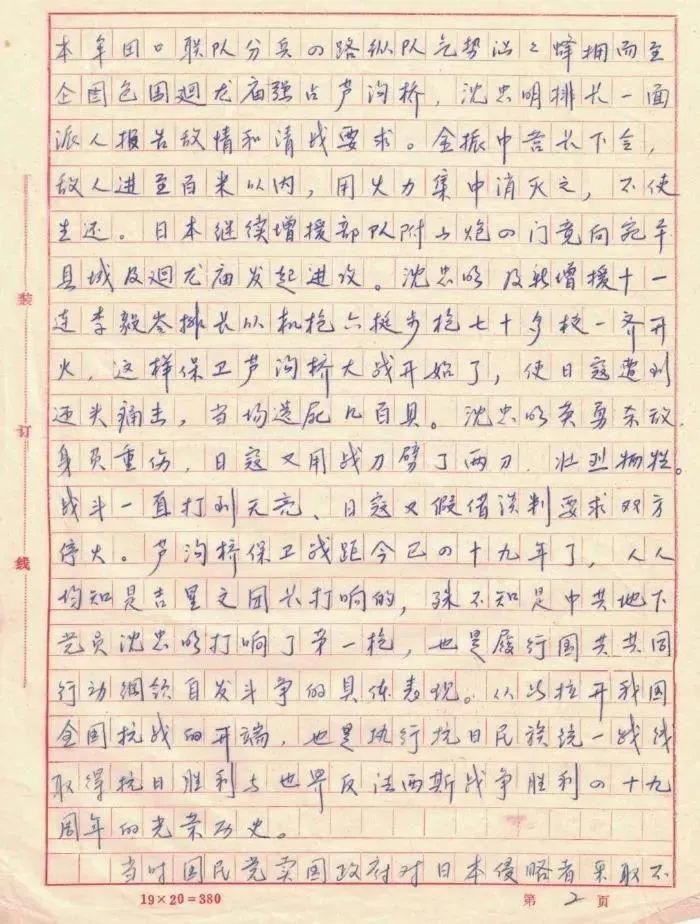 本 牟田口联队分兵四路纵队气势汹汹蜂拥而至
企图包围廻龙庙强占芦沟桥，沈忠明排长一面
派人报告敌情和请战要求。金振中营长下令，
敌人进至百米以内，用火力集中消灭之，不使
生还。日本继续增援部队附山炮四门竟向宛平
县城及廻龙庙发起进攻。沈忠明及新增援十一
连李毅岑排长以机枪六挺步枪七十多枝一齐开
火，这样保卫芦沟桥大战开始了，使日寇遭到
迎头痛击，当场造死几百具。沈忠明英勇杀敌，
身负重伤，日寇又用战刀劈了两刀，壮烈牺牲。
战斗一直打到天亮、日寇又假借谈判要求双方
停火。芦沟桥保卫战距今已四十九年了，人人
均知是吉星文团长打响的，殊不知是中共地下
党员沈忠明打响了第一枪，也是履行国共共同
行动纲领自发斗争的具体表现。从此拉开我国
全国抗战的开端，也是执行抗日民族统一战线
取得抗日胜利与世界反法西斯战争胜利四十九
周年的光荣历史。
当时国民党卖国政府对日本侵略者采取不
装
订
线
19×20=380
第 2 页